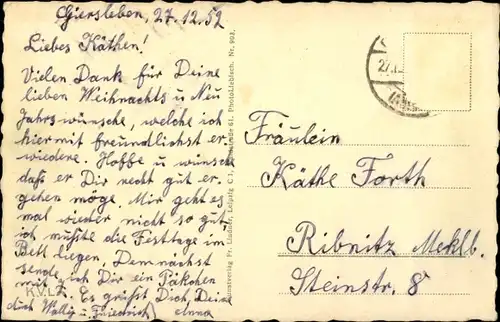 Giersleben, 27.12.52
Liebes Käthen!
Vielen Dank für Deine
lieben Weihnachts u Neu
Jahrswünsche, welche ich
hiermit freundlichst er-
wiedere. Hoffe u wünsche
daß er Dir recht gut er-
gehen möge. Mir geht es
mal wieder nicht so gut,
ich mußte die Festtage im
Bett liegen, Demnächst
sende ich Dir ein Päkchen
mit K. Es grüßt Dich, Deine
dich Wally u. Friedrich Anna
Kunstverlag Fr. Lindner, Leipzig C 1, 61. Photo Liebisch. Nr. 903.
27.1
Fräulein
Käthe Forth
Ribnitz Meklb.
Steinstr. 8